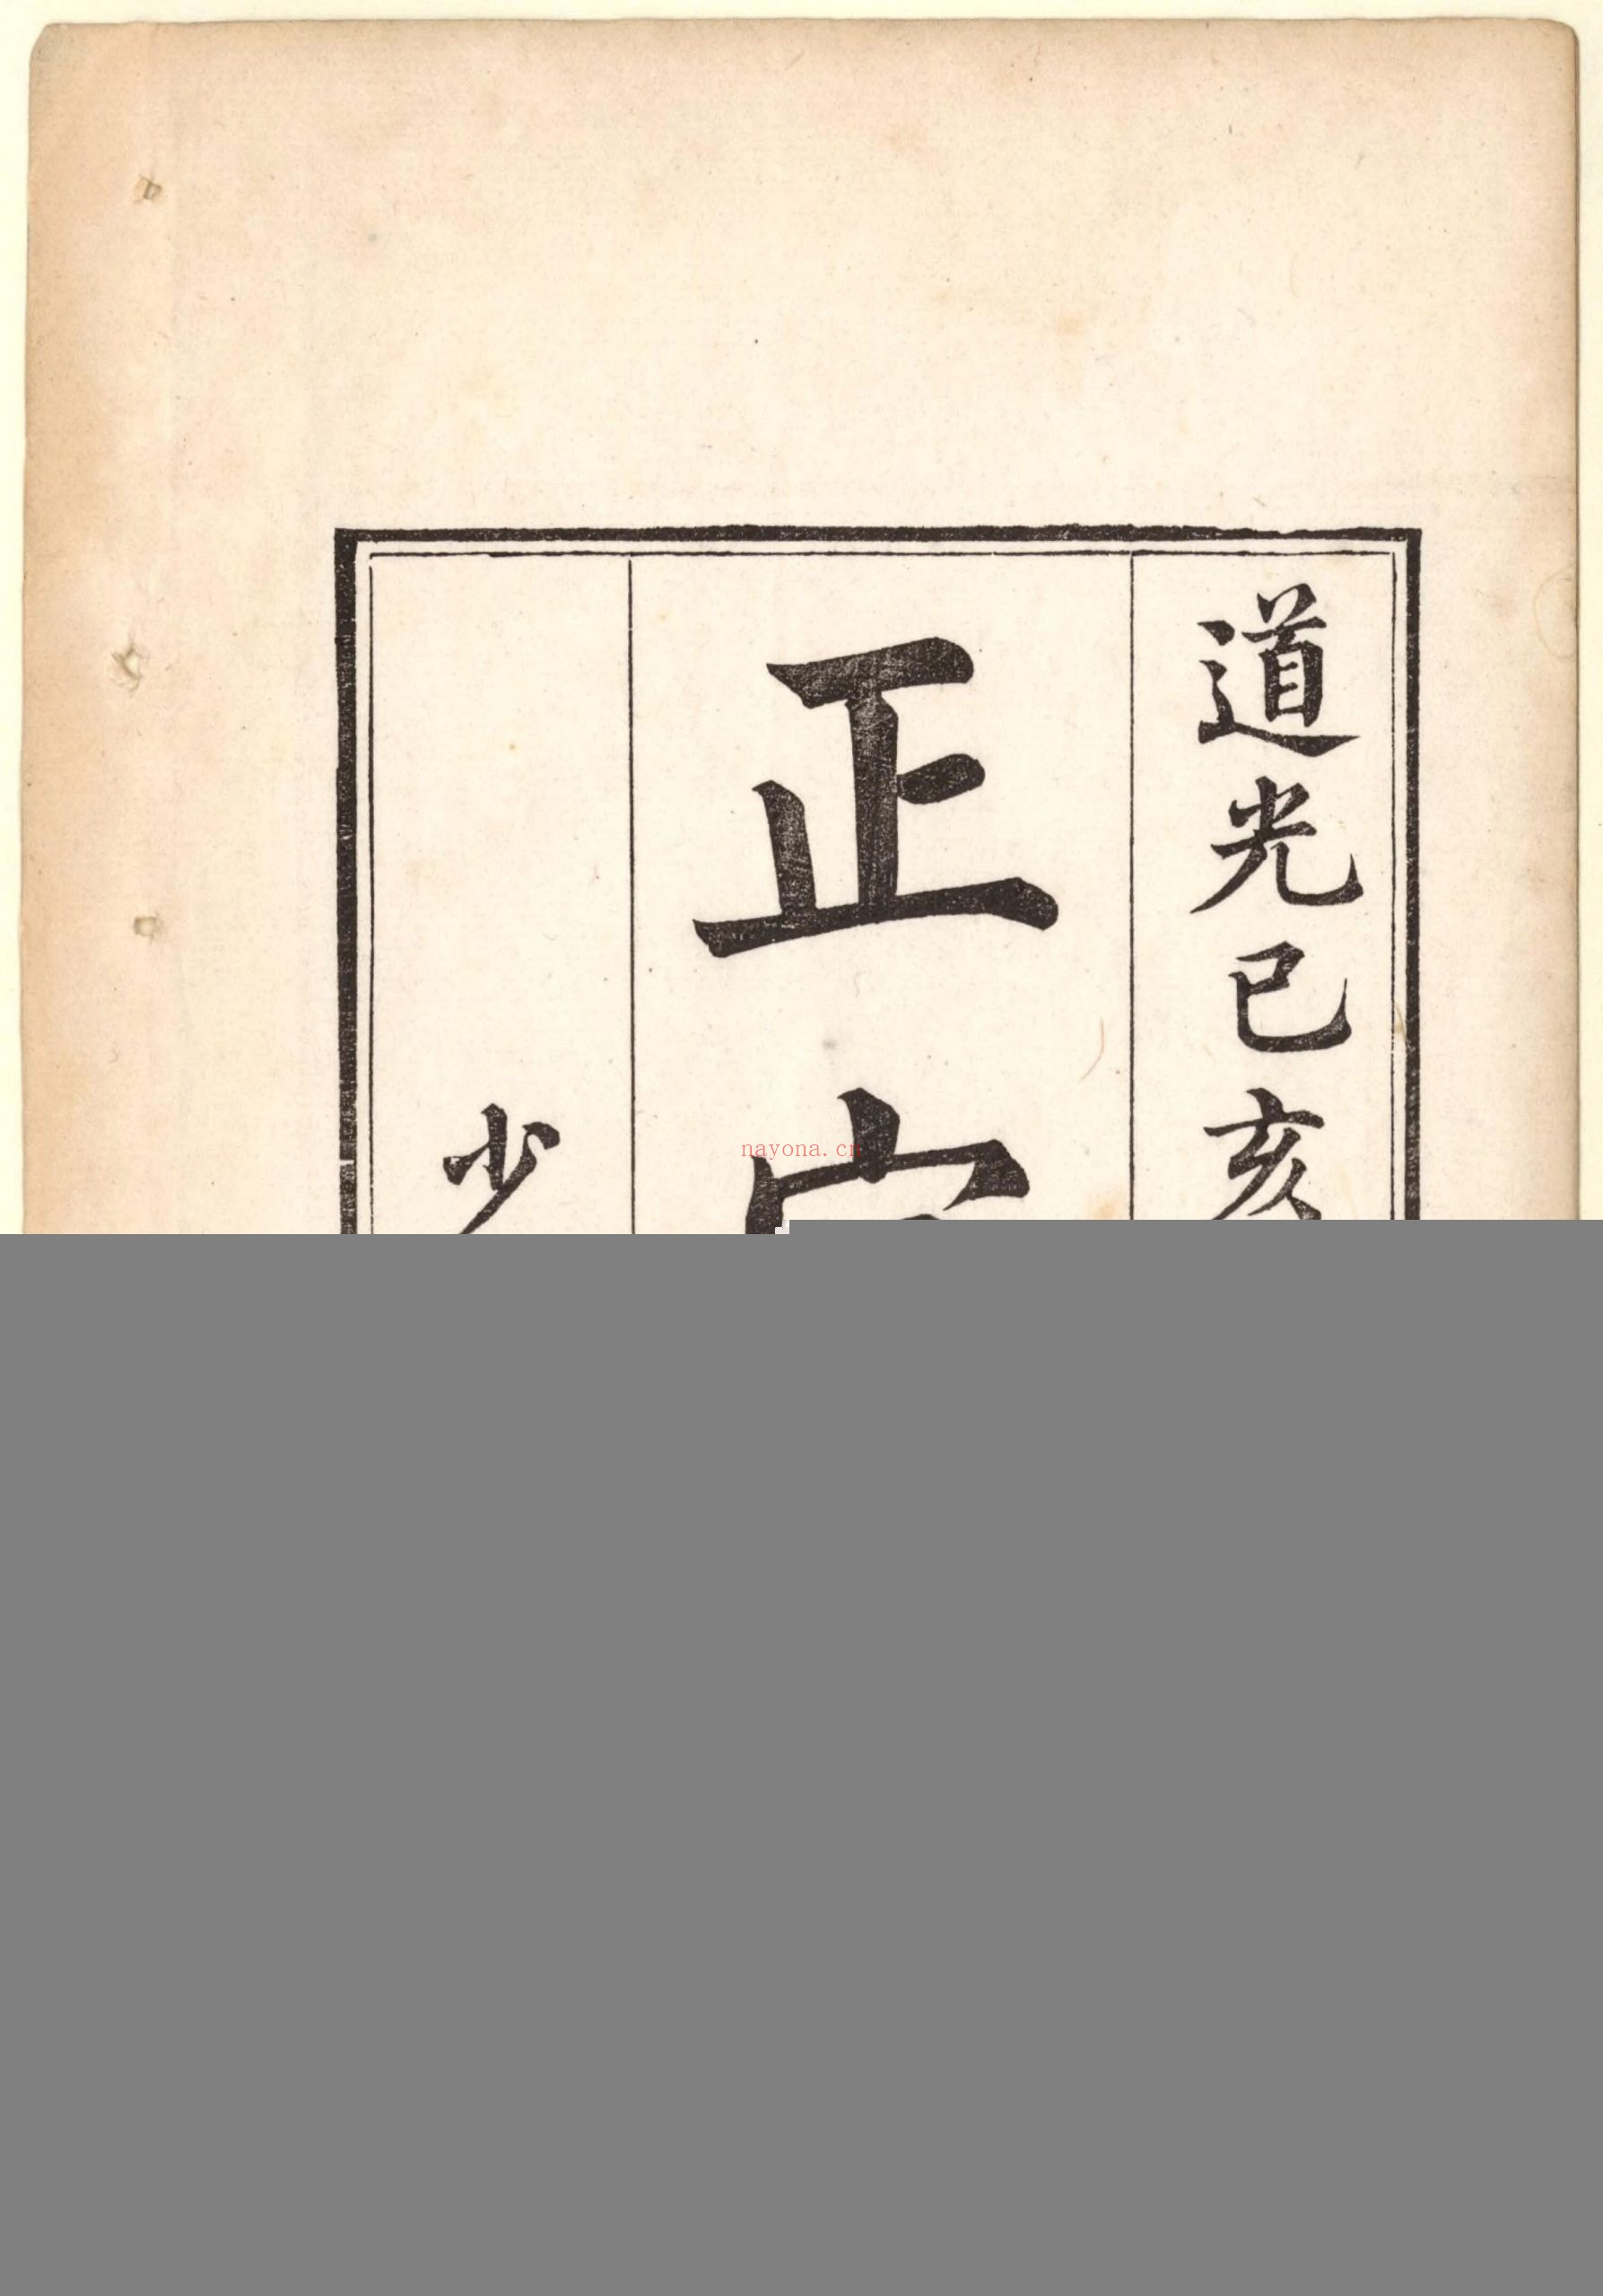 道光己亥
正
少
nayona.cn